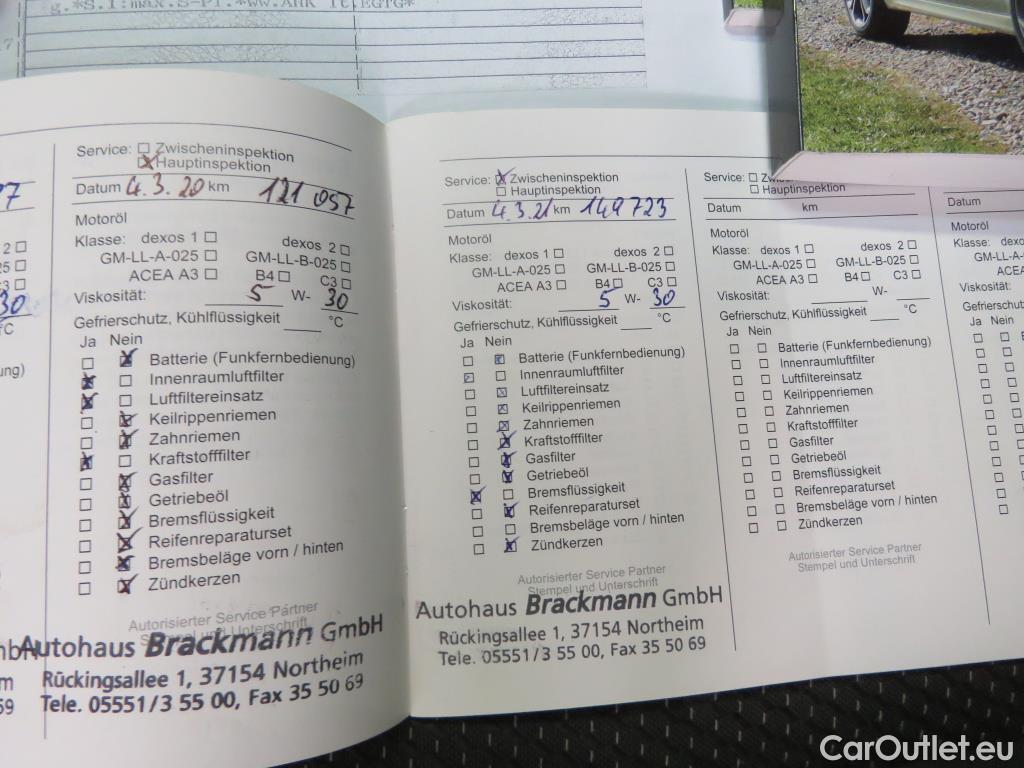 g.*S.1:max.S-Pl.*WW.AHK lt.EGTG*
Service: Zwischeninspektion
Hauptinspektion
Datum 4.3.20 km 121 057
Motoröl
Klasse: dexos 1 dexos 2
GM-LL-A-025 GM-LL-B-025
ACEA A3 B4 C3
Viskosität: 5 W- 30
Gefrierschutz, Kühlflüssigkeit °C
Ja Nein
Batterie (Funkfernbedienung)
Innenraumluftfilter
Luftfiltereinsatz
Keilrippenriemen
Zahnriemen
Kraftstofffilter
Gasfilter
Getriebeöl
Bremsflüssigkeit
Reifenreparaturset
Bremsbeläge vorn / hinten
Zündkerzen
Autorisierter Service Partner
Stempel und Unterschrift
Autohaus Brackmann GmbH
Rückingsallee 1, 37154 Northeim
Tele. 05551/3 55 00, Fax 35 50 69
Service: Zwischeninspektion
Hauptinspektion
Datum 4.3.21 km 149723
Motoröl
Klasse: dexos 1 dexos 2
GM-LL-A-025 GM-LL-B-025
ACEA A3 B4 C3
Viskosität: 5 W- 30
Gefrierschutz, Kühlflüssigkeit °C
Ja Nein
Batterie (Funkfernbedienung)
Innenraumluftfilter
Luftfiltereinsatz
Keilrippenriemen
Zahnriemen
Kraftstofffilter
Gasfilter
Getriebeöl
Bremsflüssigkeit
Reifenreparaturset
Bremsbeläge vorn / hinten
Zündkerzen
Autorisierter Service Partner
Stempel und Unterschrift
Autohaus Brackmann GmbH
Rückingsallee 1, 37154 Northeim
Tele. 05551/3 55 00, Fax 35 50 69
Service:
Hauptinspektion
Datum km
Motoröl
Klasse: dexos 1 dexos 2
GM-LL-A-025 GM-LL-B-025
ACEA A3 B4 C3
Viskosität: W-
Gefrierschutz, Kühlflüssigkeit °C
Ja Nein
Batterie (Funkfernbedienung)
Innenraumluftfilter
Luftfiltereinsatz
Keilrippenriemen
Zahnriemen
Kraftstofffilter
Gasfilter
Getriebeöl
Bremsflüssigkeit
Reifenreparaturset
Bremsbeläge vorn / hinten
Zündkerzen
Autorisierter Service Partner
Stempel und Unterschrift
Datum
Motoröl
Klasse: dexos
GM-LL-A
ACEA
Viskosität:
Gefrierschutz
Ja Nein
CarOutlet.eu